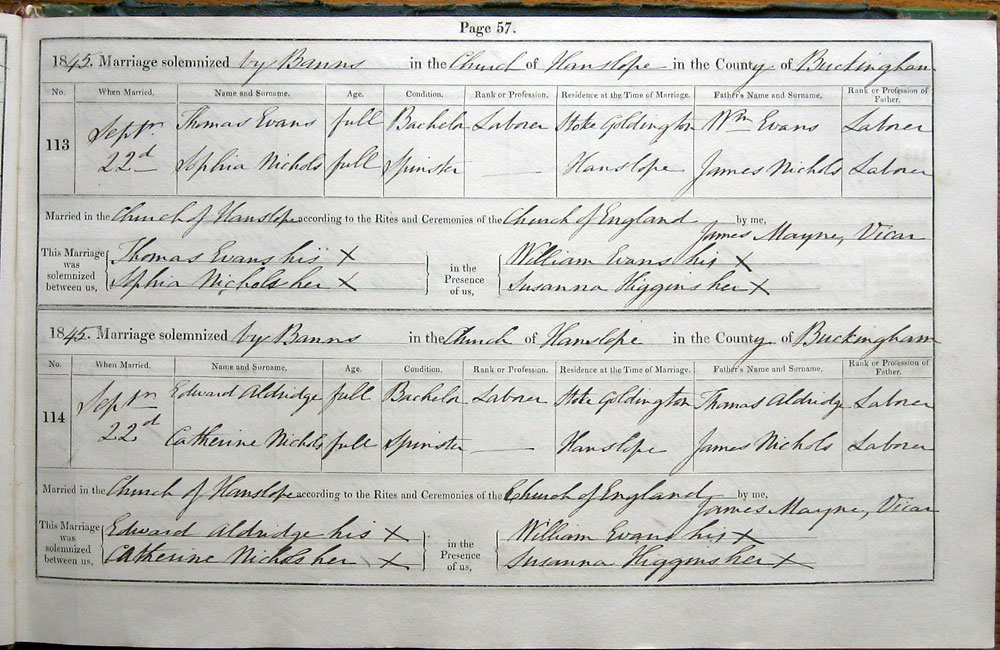 Page 57.
1845. Marriage solemnized by Banns in the Church of Hanslope in the County of Buckingham
No. When Married. Name and Surname. Age. Condition. Rank or Profession. Residence at the Time of Marriage. Father's Name and Surname. Rank or Profession of Father.
113 Septr 22d Thomas Evans full Bachelor Laborer Stoke Goldington Wm Evans Laborer
Sophia Nichols full Spinster — Hanslope James Nichols Laborer
Married in the Church of Hanslope according to the Rites and Ceremonies of the Church of England by me,
James Mayne, Vicar
This Marriage was solemnized between us, Thomas Evans his X in the Presence of us, William Evans his X
Sophia Nichols her X Susanna Higgins her X
1845. Marriage solemnized by Banns in the Church of Hanslope in the County of Buckingham
No. When Married. Name and Surname. Age. Condition. Rank or Profession. Residence at the Time of Marriage. Father's Name and Surname. Rank or Profession of Father.
114 Septr 22d Edward Aldridge full Bachelor Laborer Stoke Goldington Thomas Aldridge Laborer
Catherine Nichols full Spinster — Hanslope James Nichols Laborer
Married in the Church of Hanslope according to the Rites and Ceremonies of the Church of England by me,
James Mayne, Vicar
This Marriage was solemnized between us, Edward Aldridge his X in the Presence of us, William Evans his X
Catherine Nichols her X Susanna Higgins her X